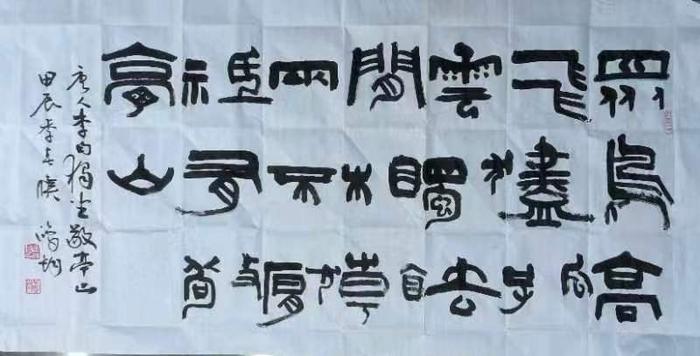 眾鳥高
飛盡孤
雲獨去
閒相看
兩不厭
祗有敬
亭山
唐人李白獨坐敬亭山
甲辰季春